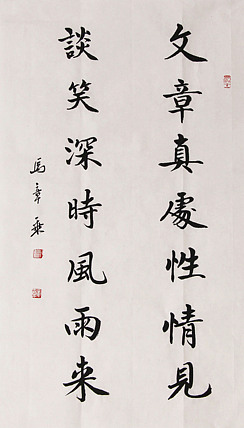 文章真處性情見
談笑深時風雨来
馬章乘